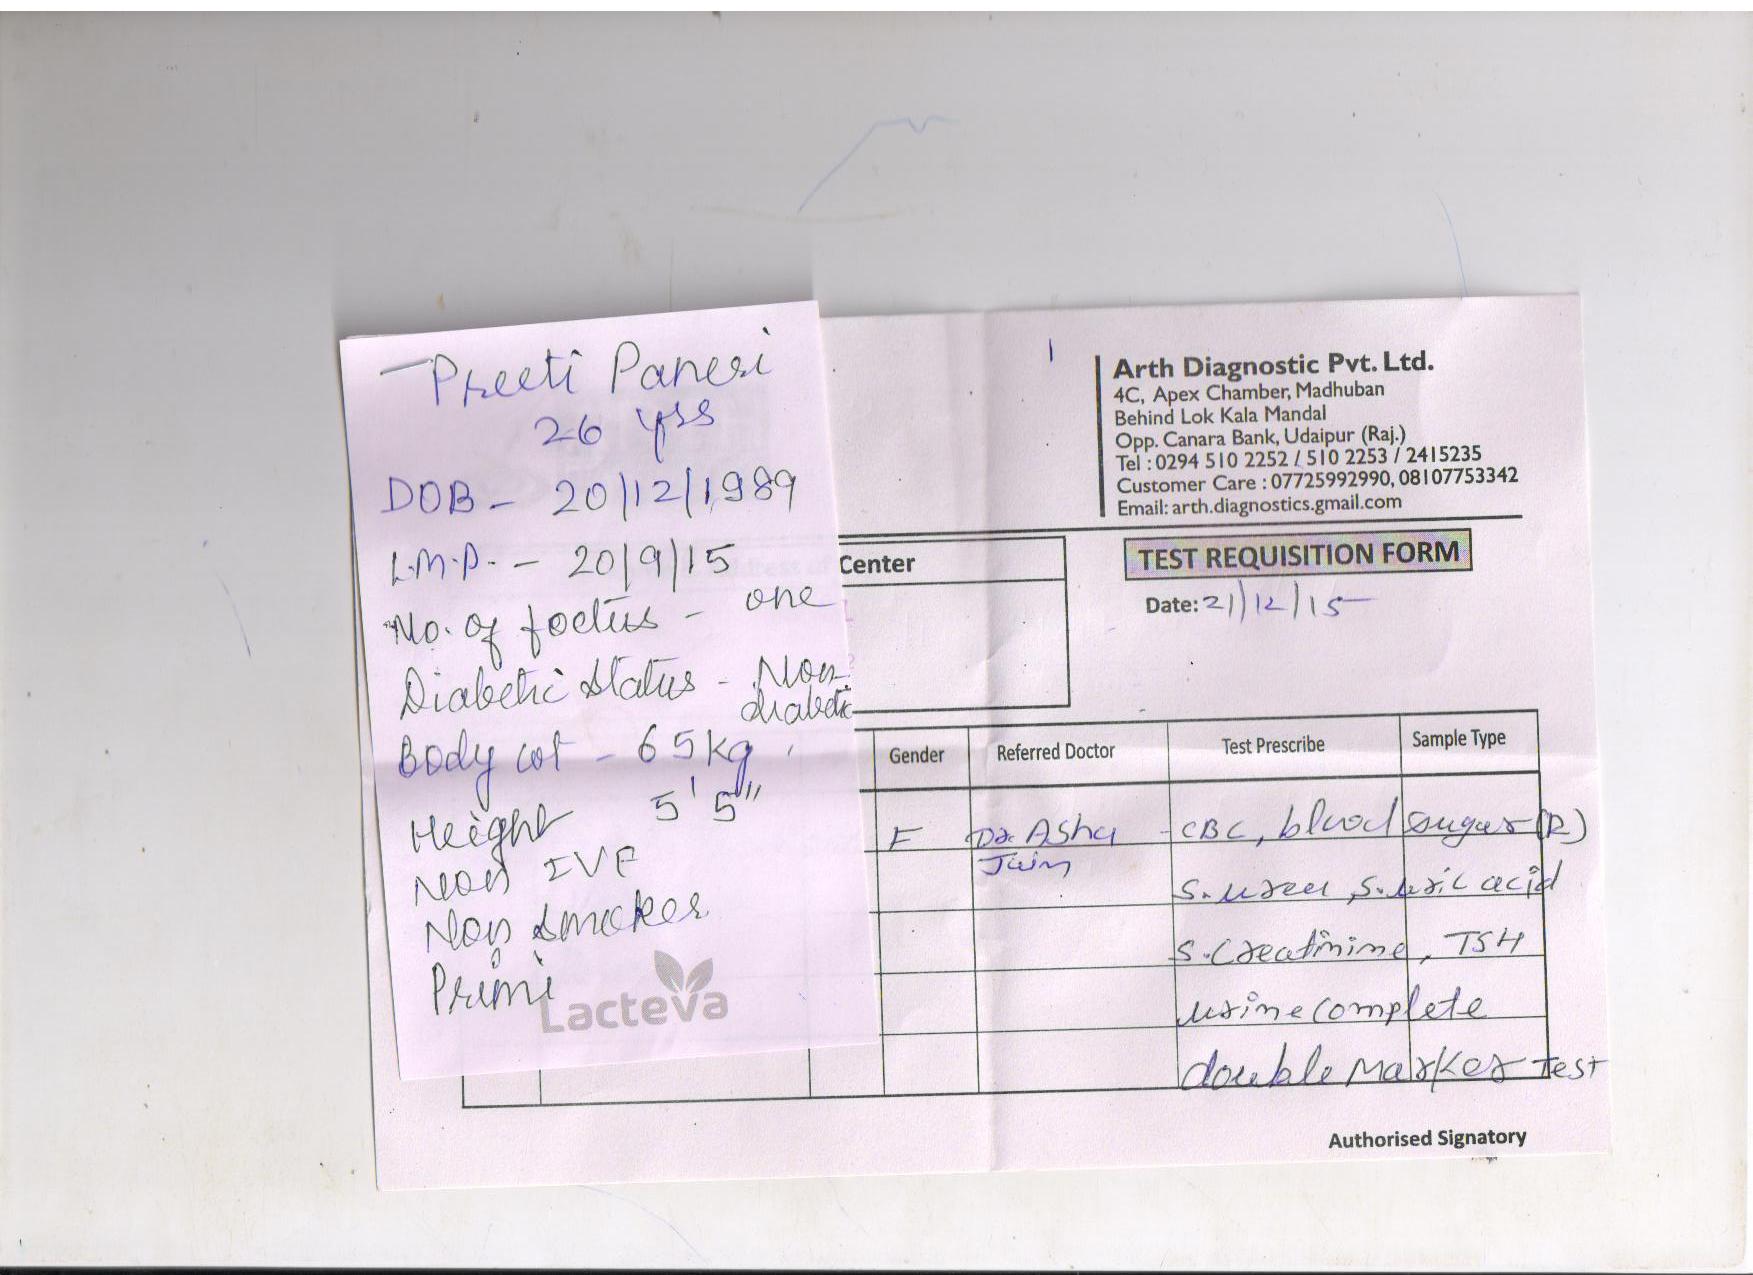 Preeti Paneri
26 yrs
DOB - 20/12/1989
L.M.P. - 20/9/15
No. of foetus - one
Diabetic Status - Non
diabetic
Body wt - 65kg
Height 5'5"
Non IVF
Non Smoker
Primi
Lacteva
Arth Diagnostic Pvt. Ltd.
4C, Apex Chamber, Madhuban
Behind Lok Kala Mandal
Opp. Canara Bank, Udaipur (Raj.)
Tel : 0294 510 2252 / 510 2253 / 2415235
Customer Care : 07725992990, 08107753342
Email: arth.diagnostics.gmail.com
Center
TEST REQUISITION FORM
Date: 21/12/15
Gender Referred Doctor Test Prescribe Sample Type
F Dr. Asha - CBC, blood sugar (R)
Jain
S. urea, S. uric acid
S. Creatinine, TSH
urine complete
double Marker Test
Authorised Signatory